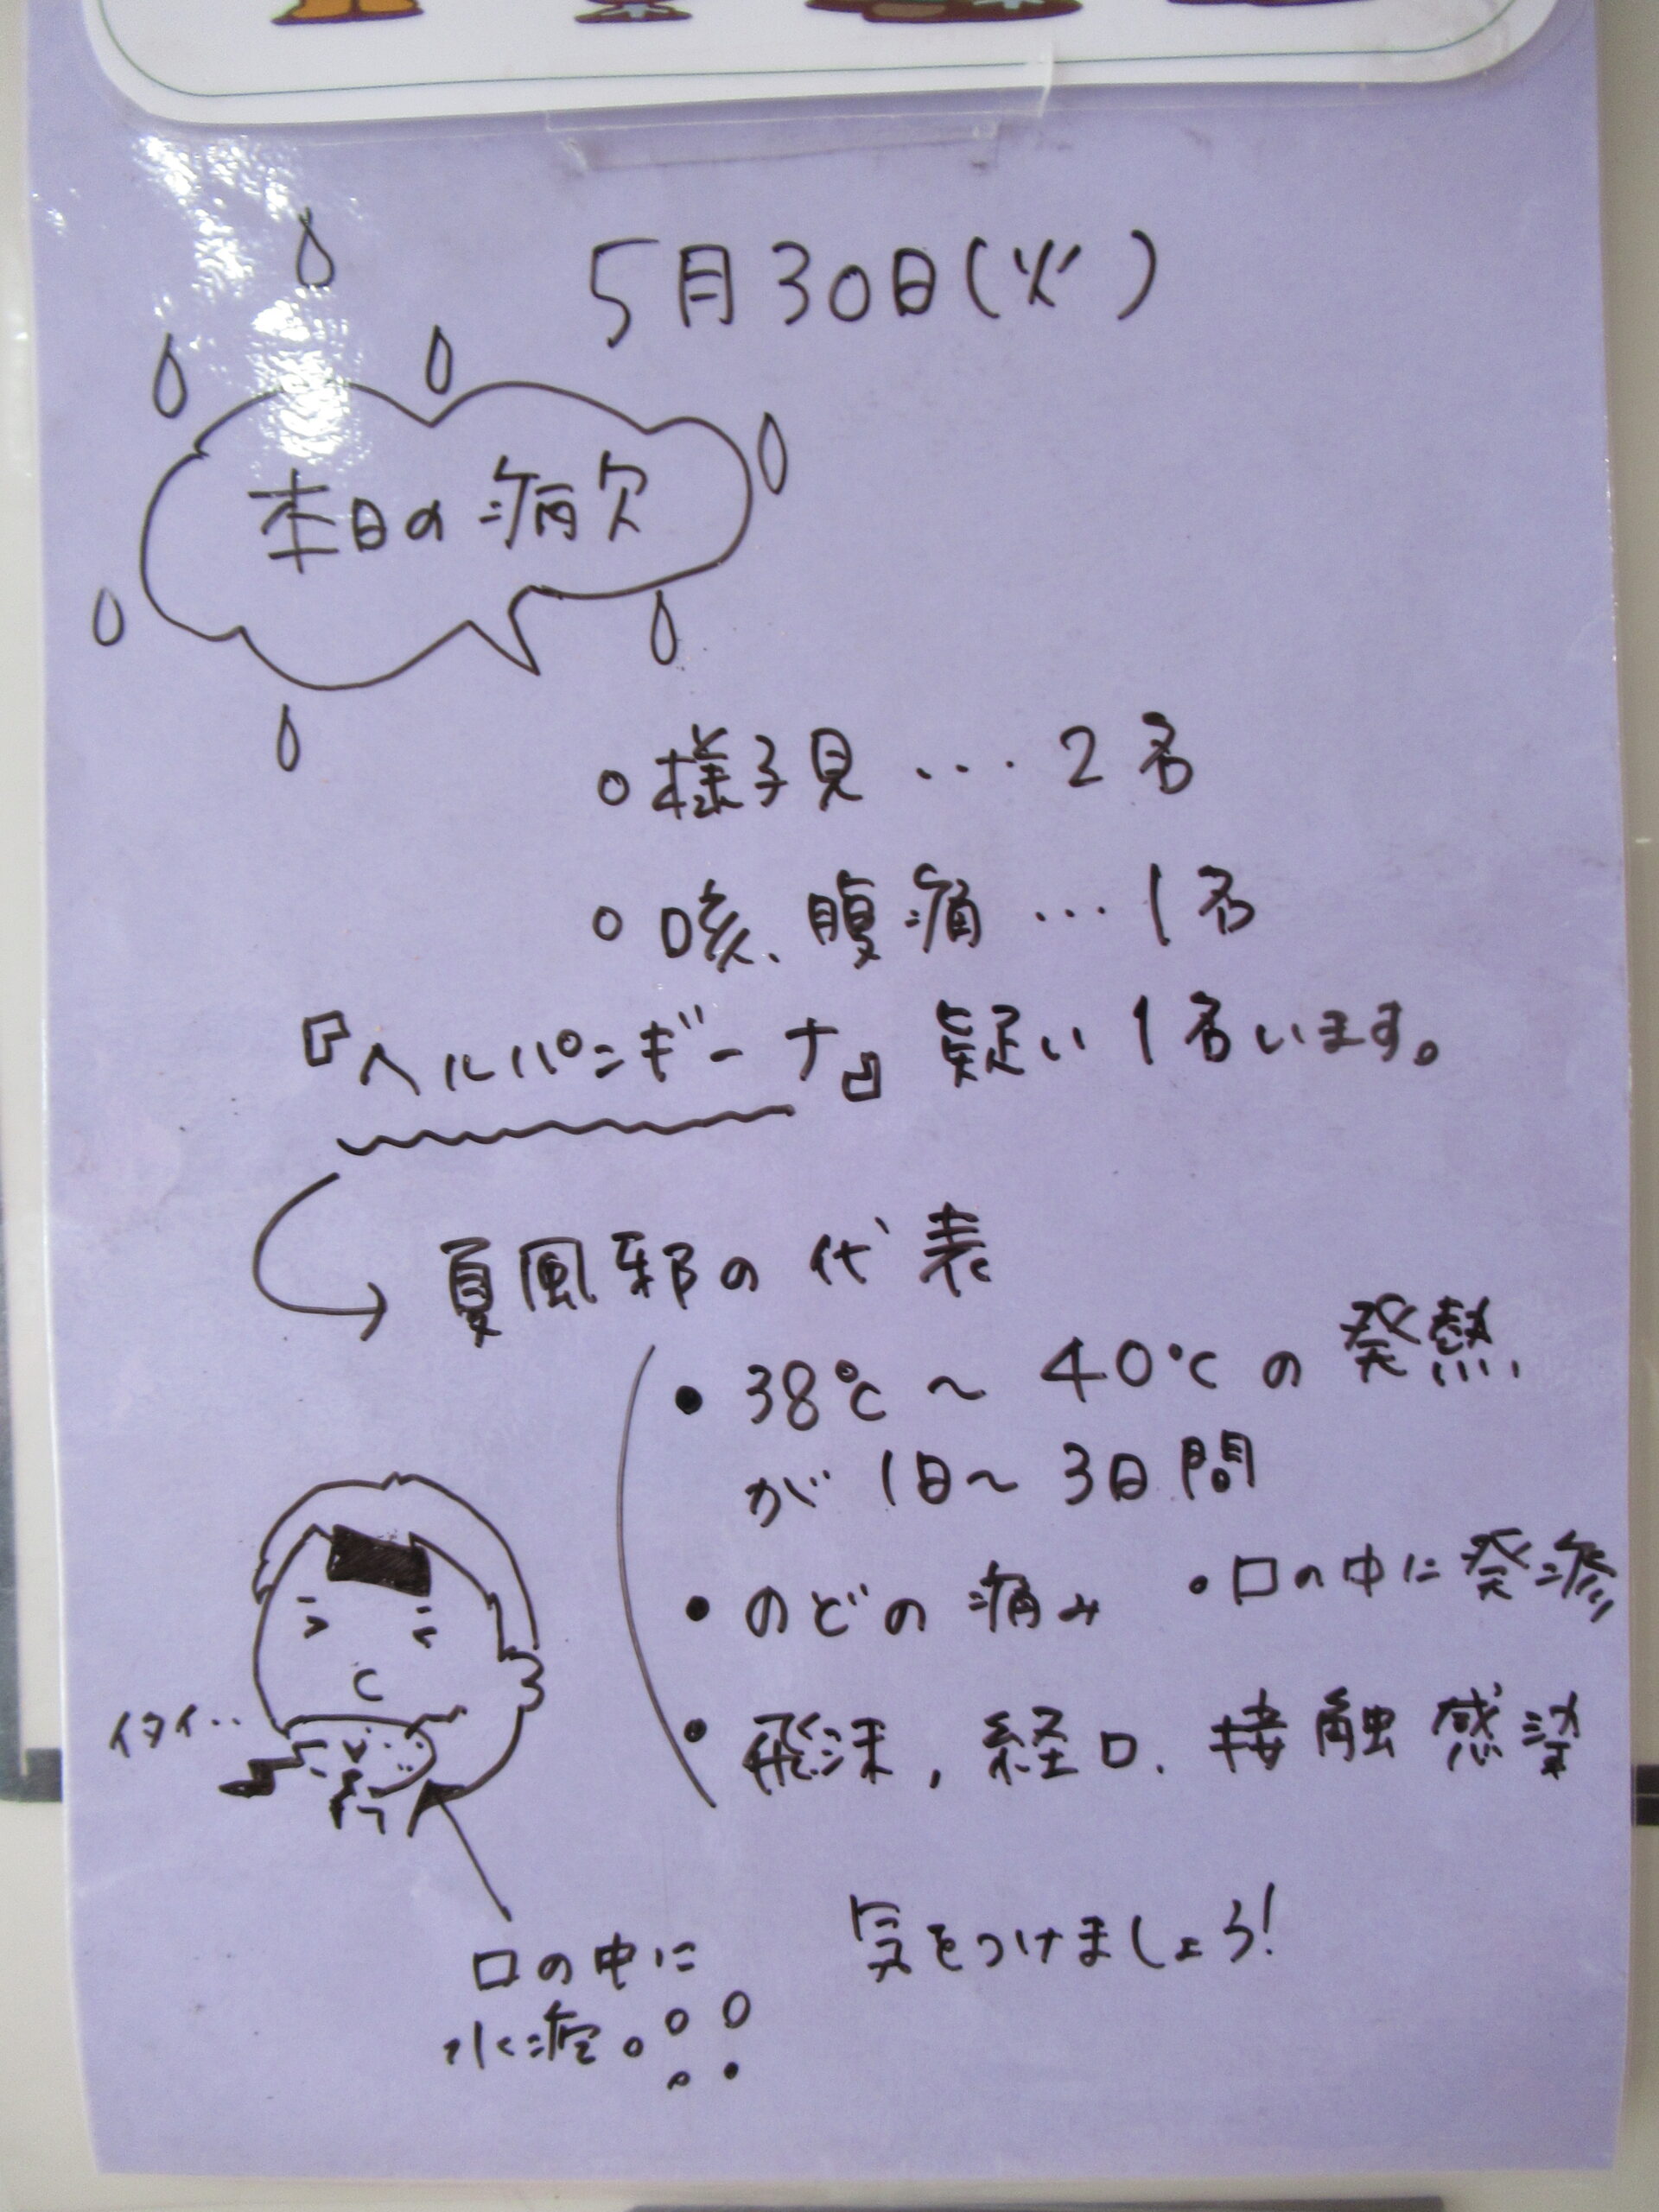 5月30日(火)
本日の病欠
○様子見…2名
○咳、腹痛…1名
『ヘルパンギーナ』疑い1名います。
夏風邪の代表
・38℃〜40℃の発熱
が1日〜3日間
・のどの痛み ・口の中に発疹
・飛沫,経口,接触感染
イタイ..
口の中に
水疱。
気をつけましょう!